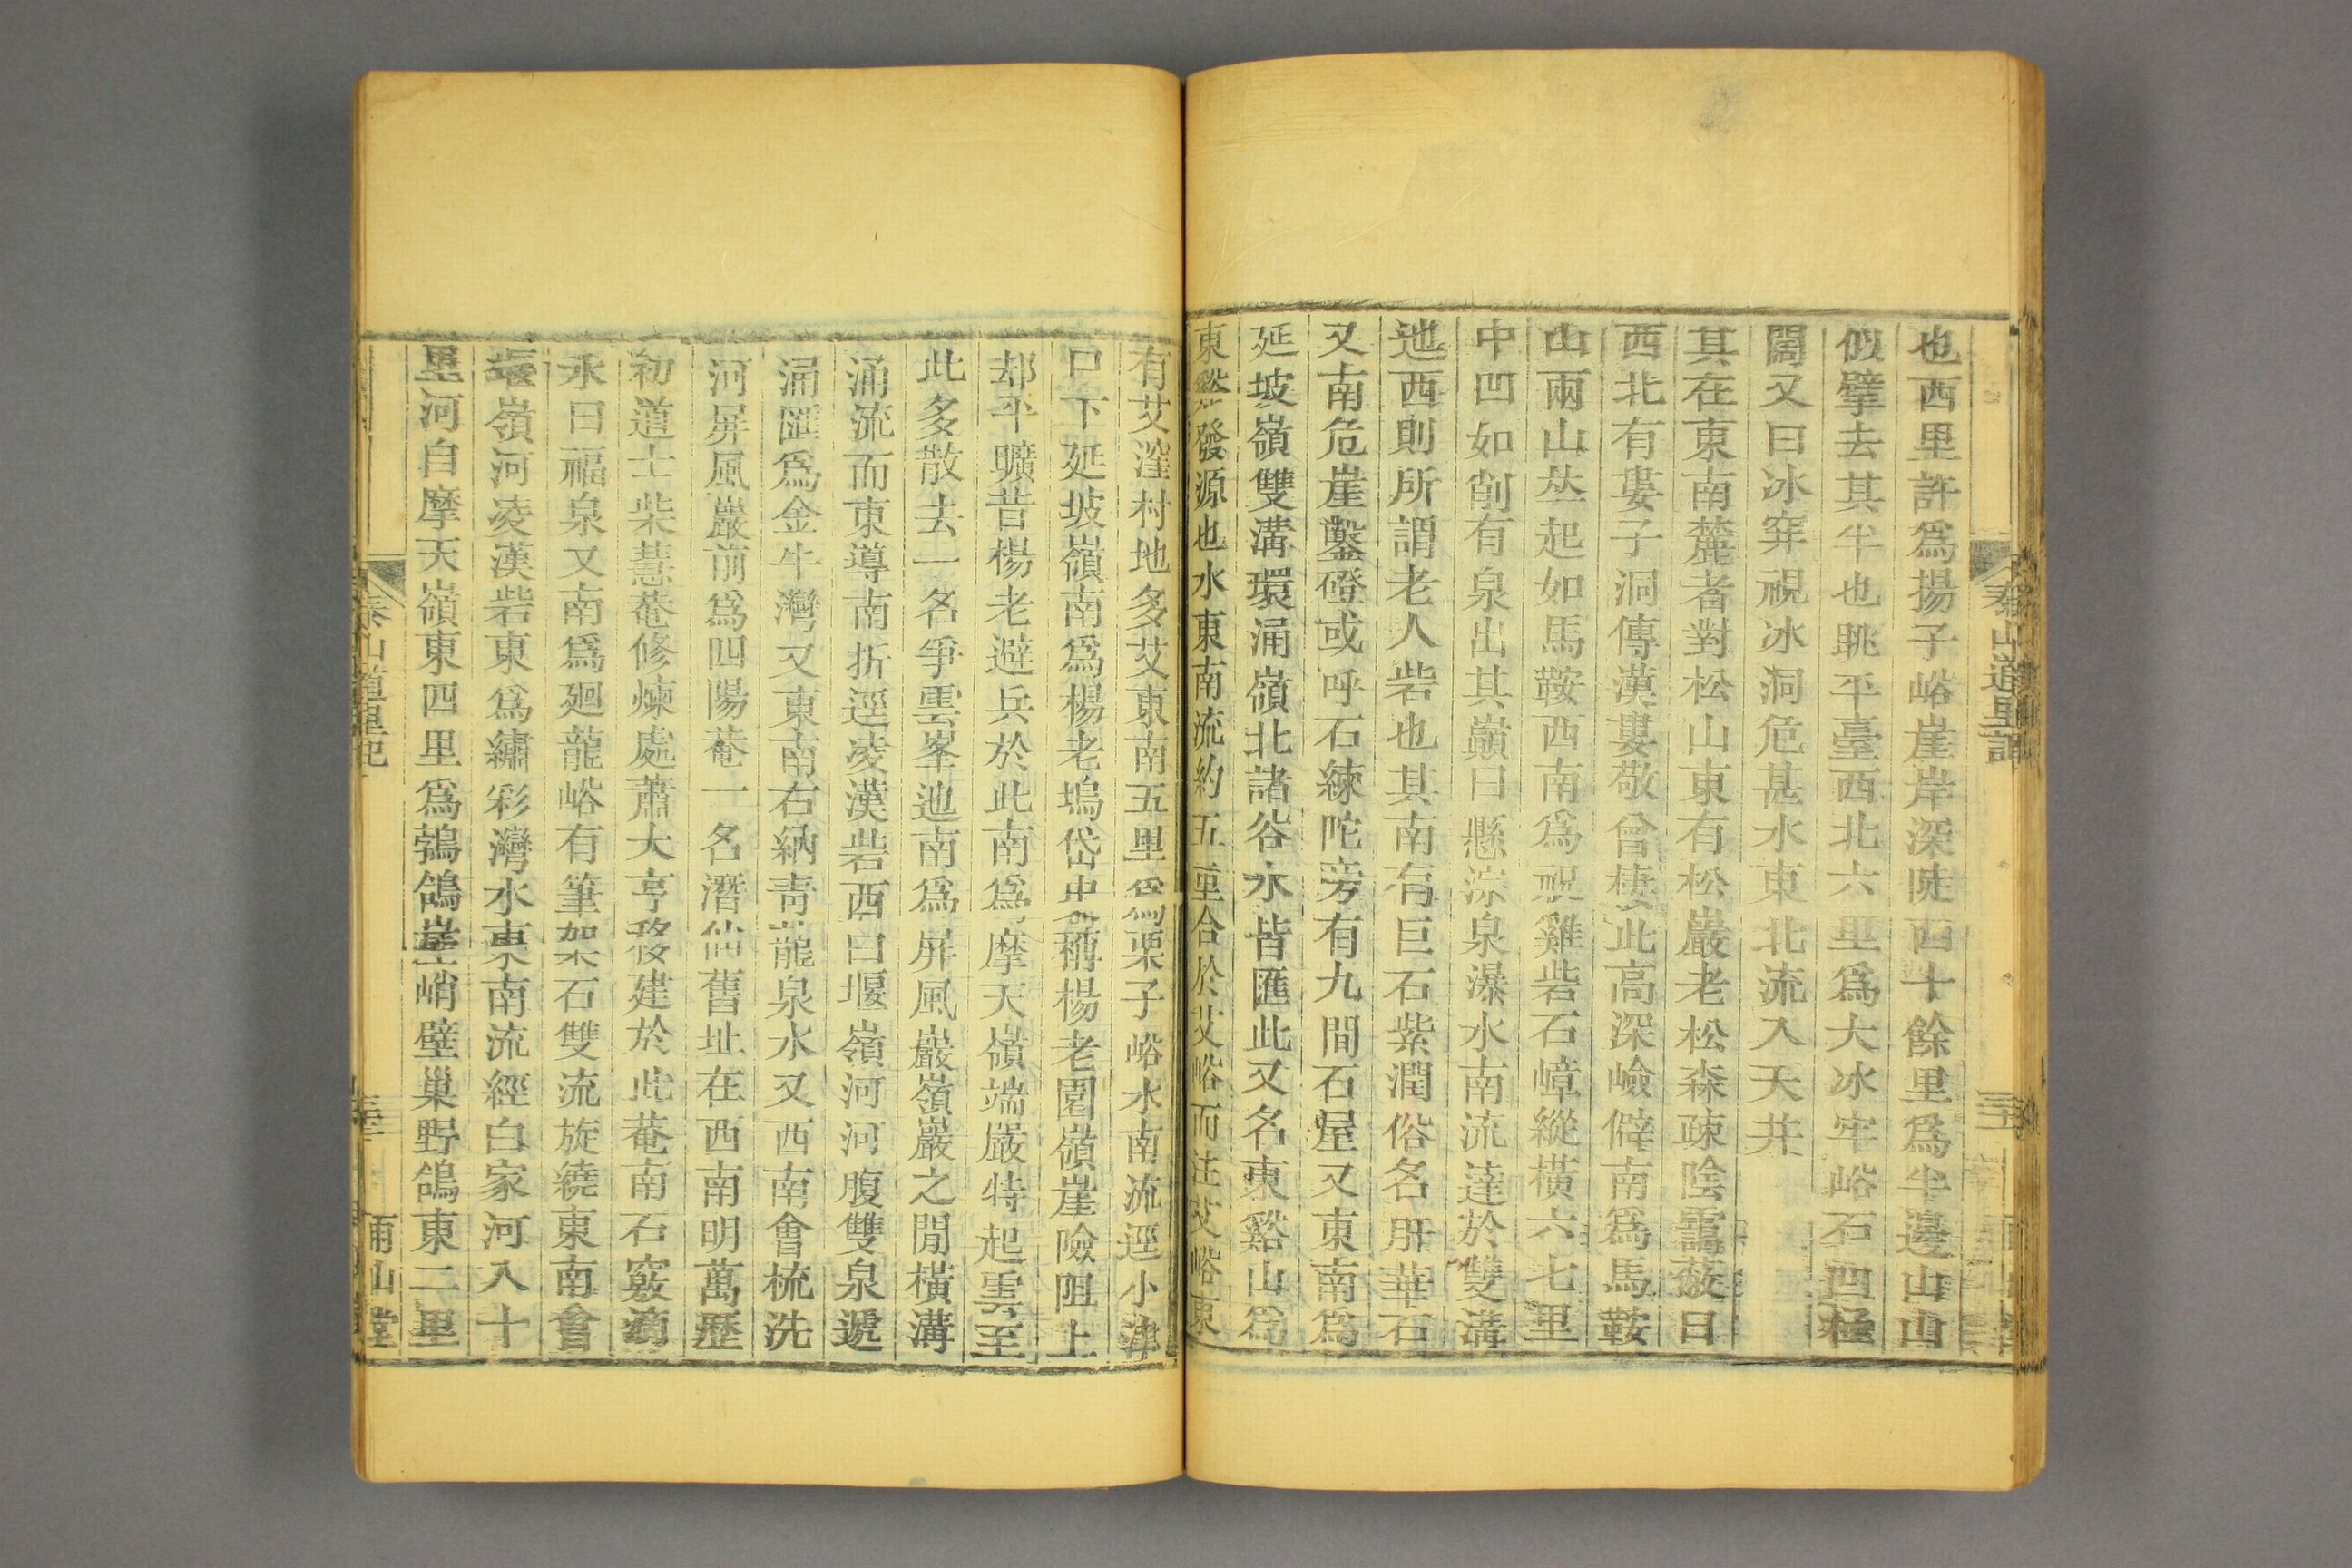 也西里許爲揚子峪崖岸深陡西十餘里爲半邊山山
似擘去其半也眺平臺西北六里爲大冰牢峪石罅極
闊又曰冰穽視冰洞危甚水東北流入天井
其在東南麓者對松山東有松巖老松森疎陰靄蔽日
西北有婁子洞傳漢婁敬曾棲此高深嶮僻南爲馬鞍
山兩山丛起如馬鞍西南爲祝雞砦石嶂縱橫六七里
中凹如削有泉出其巔曰懸淙泉瀑水南流達於雙溝
迆西則所謂老人砦也其南有巨石紫潤俗名肝華石
又南危崖鑿磴或呼石練陀旁有九間石屋又東南爲
延坡嶺雙溝環涌嶺北諸谷水皆匯此又名東谿山爲
東谿發源也水東南流約五里合於艾峪而注艾峪東
有艾窪村地多艾東南五里爲栗子峪水南流逕小津
口下延坡嶺南爲楊老塢岱史稱楊老園嶺崖險阻上
却平曠昔楊老避兵於此南爲摩天嶺端嚴特起雲至
此多散去一名爭雲峯迆南爲屏風巖嶺巖之閒橫溝
涌流而東導南折逕凌漢砦西曰堰嶺河河腹雙泉遞
涌匯爲金牛灣又東南右納靑龍泉水又西南會梳洗
河屏風巖前爲四陽菴一名潛仙舊址在西南明萬歷
初道士柴慧菴修煉處蕭大亨移建於此菴南石竅滴
水曰福泉又南爲廻龍峪有筆架石雙流旋繞東南會
堰嶺河凌漢砦東爲繡彩灣水東南流經白家河入十
里河自摩天嶺東四里爲鵓鴿崖崖峭壁巢野鴿東二里
泰山道里記
三十
泰山道里記
雨山堂